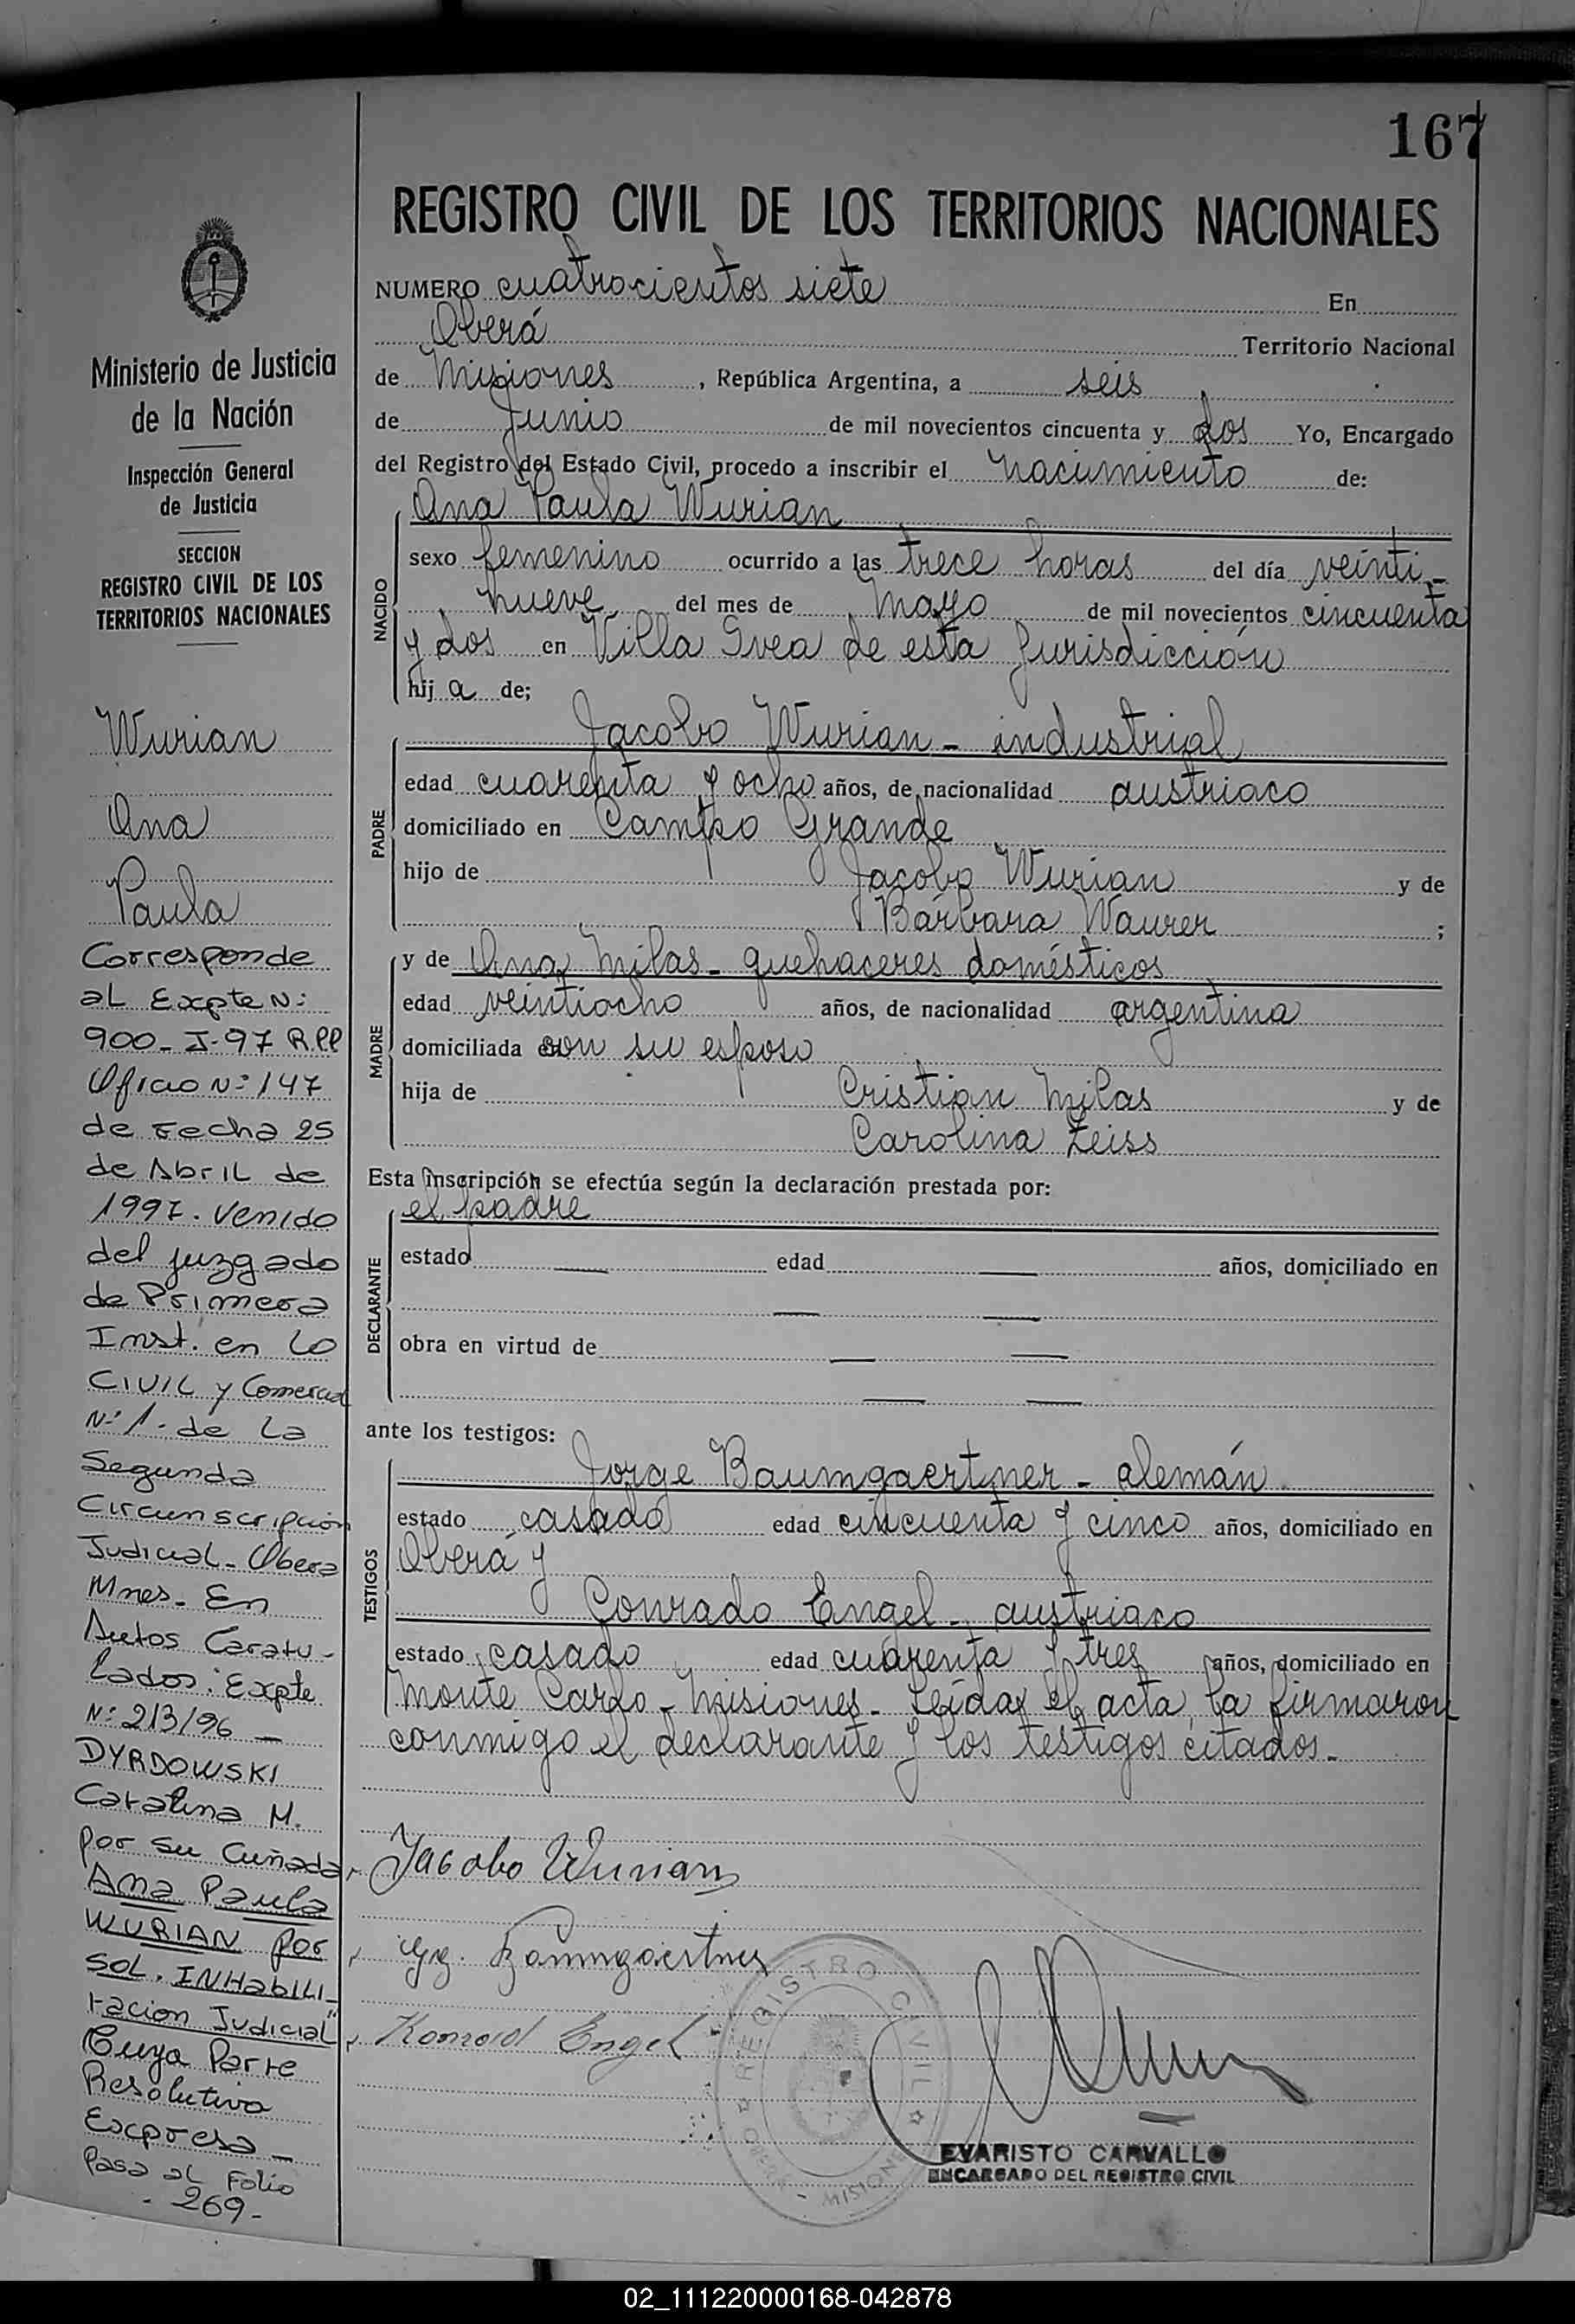 167
REGISTRO CIVIL DE LOS TERRITORIOS NACIONALES
Ministerio de Justicia
de la Nación
Inspección General
de Justicia
SECCION
REGISTRO CIVIL DE LOS
TERRITORIOS NACIONALES
Wurian
Ana
Paula
Corresponde
al Expte Nº
900-I-97 R.P.P
Oficio Nº 147
de Fecha 25
de Abril de
1997. Venido
del juzgado
de Primera
Inst. en Lo
Civil y Comercial
Nº 1. de La
Segunda
Circunscripción
Judicial - Obera
Mnes. En
Autos Caratu-
lados: Expte
Nº 213/96 -
DYRDOWSKI
Catalina M.
por su Cuñada
Ana Paula
WURIAN por
SOL. INHabili-
tacion Judicial"
Cuya Parte
Resolutiva
Expresa -
Pasa al Folio
- 269 -
NUMERO cuatrocientos siete En
Oberá Territorio Nacional
de Misiones, República Argentina, a seis
de Junio de mil novecientos cincuenta y dos Yo, Encargado
del Registro del Estado Civil, procedo a inscribir el nacimiento de:
NACIDO
Ana Paula Wurian
sexo femenino ocurrido a las trece horas del día veinti-
nueve del mes de mayo de mil novecientos cincuenta
y dos en Villa Svea de esta Jurisdicción
hija de;
PADRE
Jacobo Wurian - industrial
edad cuarenta y ocho años, de nacionalidad austriaco
domiciliado en Campo Grande
hijo de Jacobo Wurian y de
Bárbara Waurer ;
MADRE
y de Ana Milas - quehaceres domésticos
edad veintiocho años, de nacionalidad argentina
domiciliada con su esposo
hija de Cristian Milas y de
Carolina Zeiss
Esta inscripción se efectúa según la declaración prestada por:
DECLARANTE
el padre
estado — edad — años, domiciliado en
— —
obra en virtud de — —
— —
ante los testigos:
TESTIGOS
Jorge Baumgaertner - alemán
estado casado edad cincuenta y cinco años, domiciliado en
Oberá y
Conrado Engel - austriaco
estado casado edad cuarenta y tres años, domiciliado en
Monte Carlo - Misiones - Leída el acta, la firmaron
conmigo el declarante y los testigos citados -
Jacobo Wurian
Baumgaertner
Konrad Engel
REGISTRO CIVIL
MISIONES
EVARISTO CARVALLO
ENCARGADO DEL REGISTRO CIVIL
02_111220000168-042878